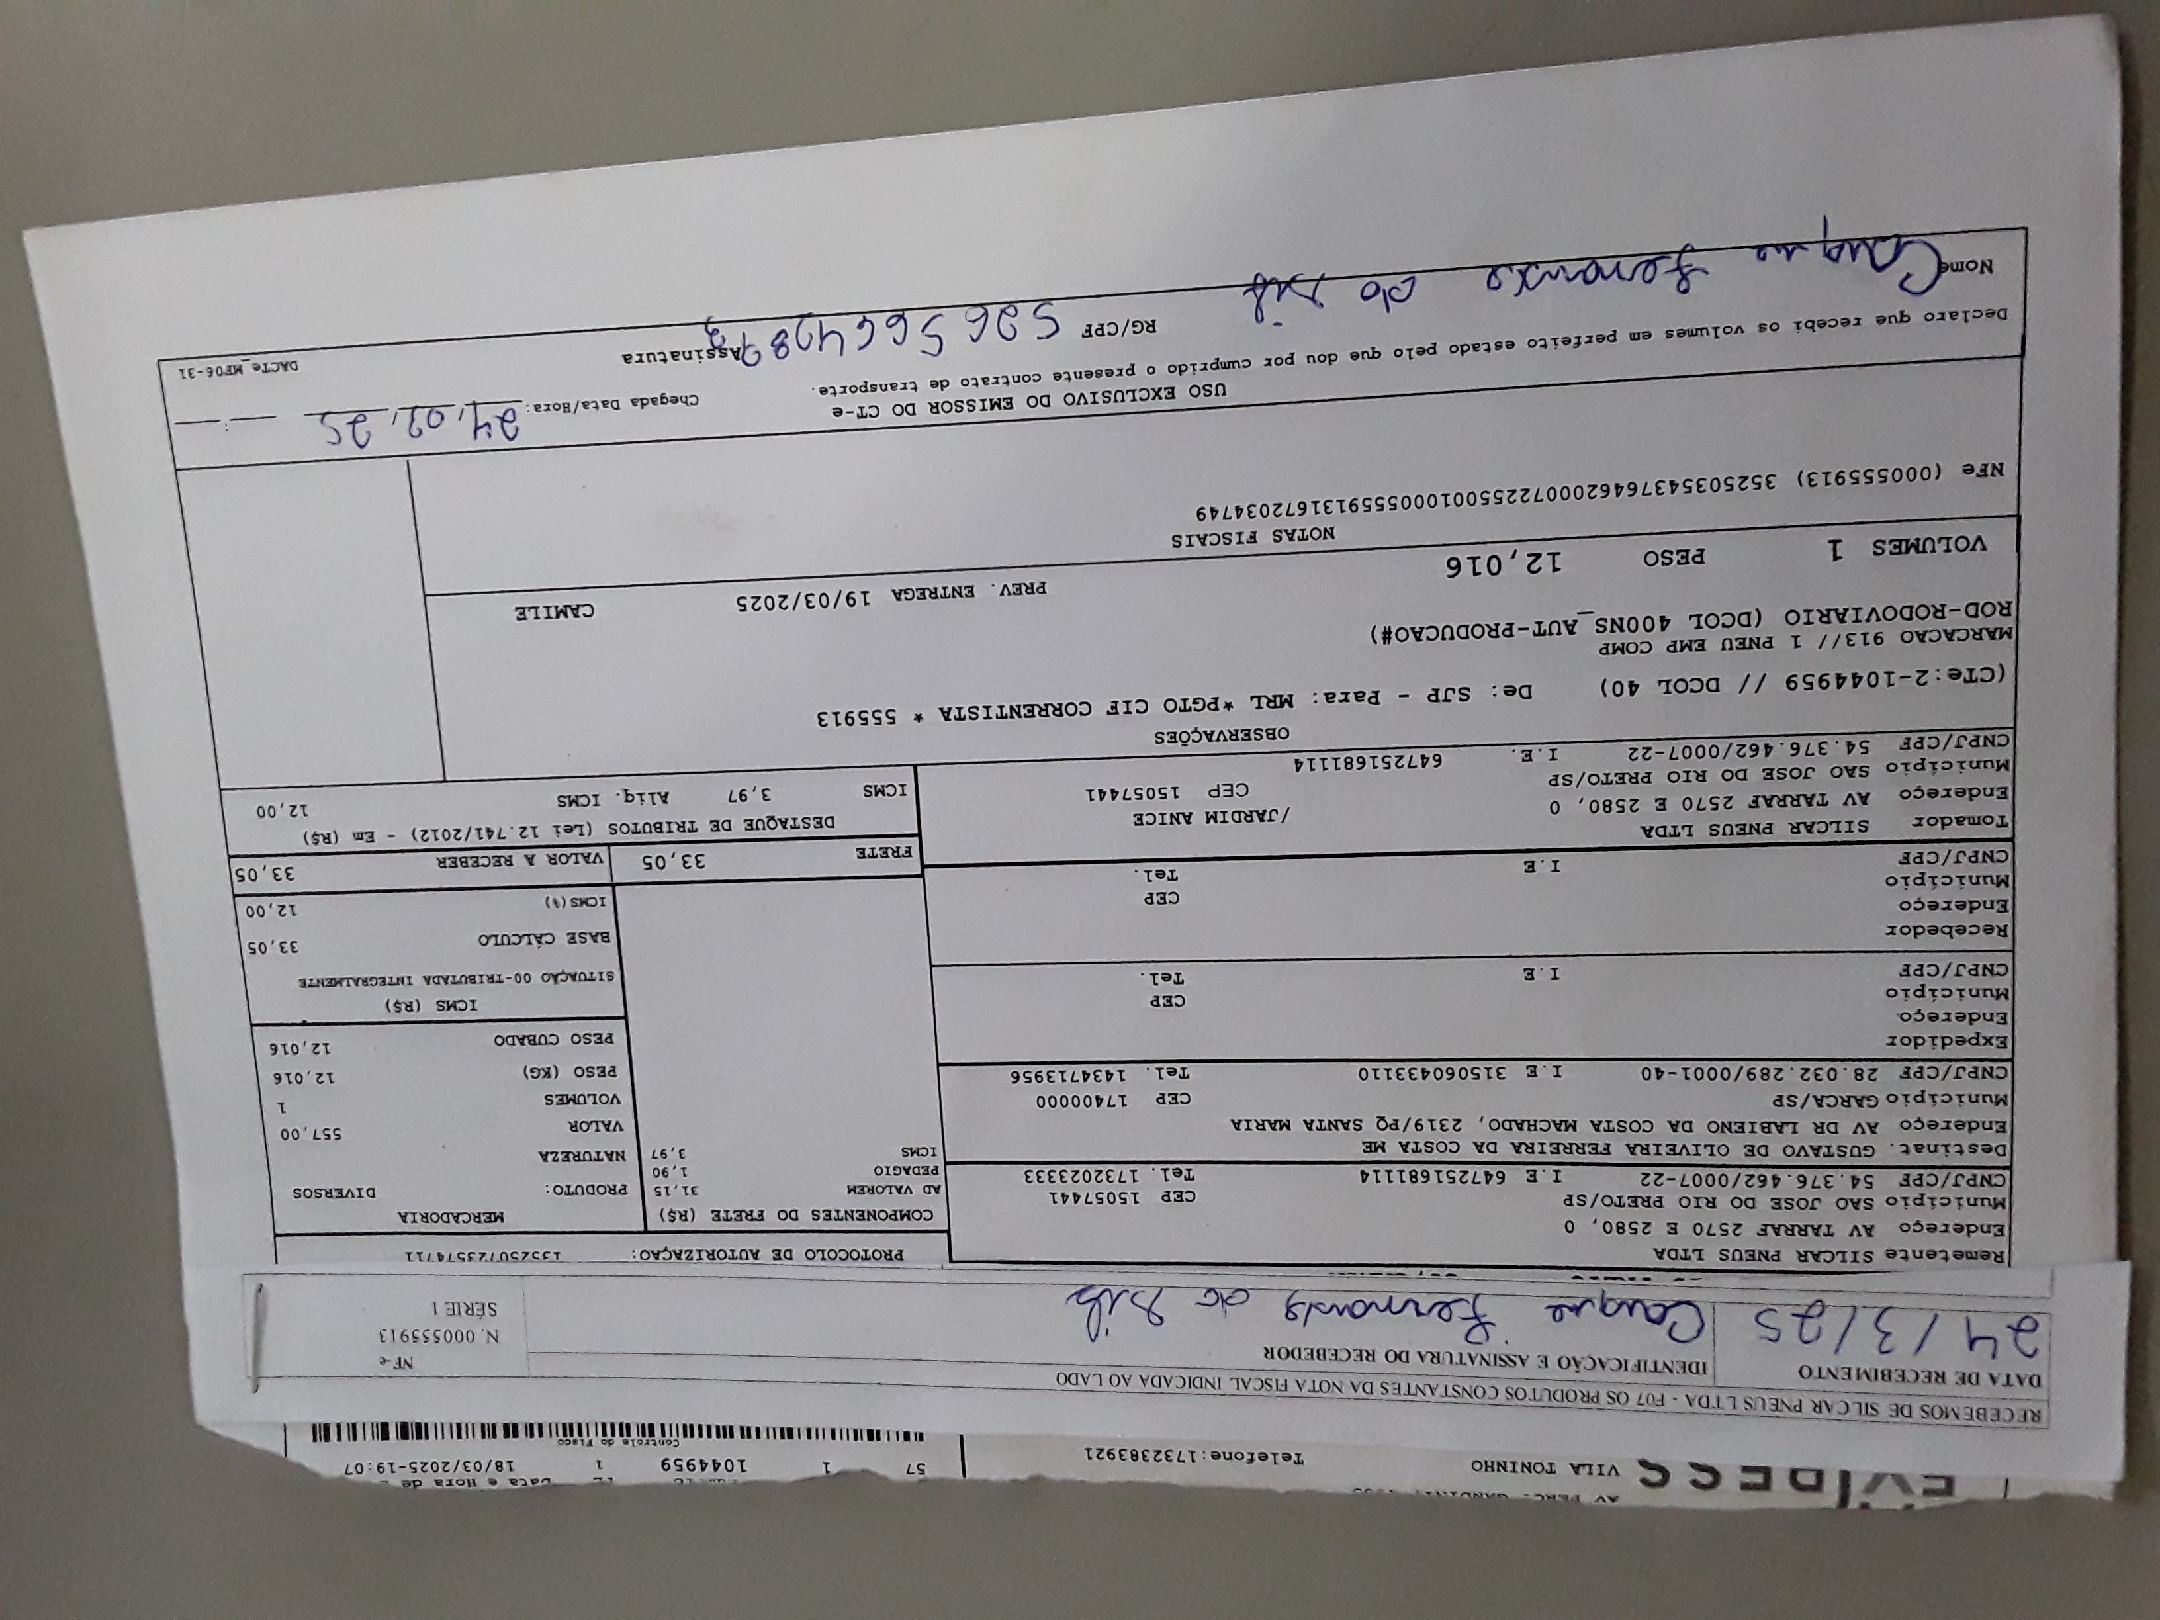 VILA TONINHO Telefone:1732383921
57 1 1044959 1 18/03/2025-19:07
Controle do Fisco
RECEBEMOS DE SILCAR PNEUS LTDA - F07 OS PRODUTOS CONSTANTES DA NOTA FISCAL INDICADA AO LADO
DATA DE RECEBIMENTO
24/3/25
IDENTIFICAÇÃO E ASSINATURA DO RECEBEDOR
NF-e
N. 000555913
SÉRIE 1
Remetente SILCAR PNEUS LTDA
Endereço AV TARRAF 2570 E 2580, 0
Município SAO JOSE DO RIO PRETO/SP CEP 15057441
CNPJ/CPF 54.376.462/0007-22 I.E 647251681114 Tel. 1732023333
Destinat. GUSTAVO DE OLIVEIRA FERREIRA DA COSTA ME
Endereço AV DR LABIENO DA COSTA MACHADO, 2319/PQ SANTA MARIA
Município GARCA/SP CEP 17400000
CNPJ/CPF 28.032.289/0001-40 I.E 315060433110 Tel. 1434713956
Expedidor
Endereço
Município CEP
CNPJ/CPF I.E Tel.
Recebedor
Endereço
Município CEP
CNPJ/CPF I.E Tel.
Tomador SILCAR PNEUS LTDA
Endereço AV TARRAF 2570 E 2580, 0 /JARDIM ANICE
Município SAO JOSE DO RIO PRETO/SP CEP 15057441
CNPJ/CPF 54.376.462/0007-22 I.E. 647251681114
PROTOCOLO DE AUTORIZAÇÃO: 135250723574711
COMPONENTES DO FRETE (R$)
AD VALOREM 31,15
PEDAGIO 1,90
ICMS 3,97
MERCADORIA
PRODUTO: DIVERSOS
NATUREZA
VALOR 557,00
VOLUMES 1
PESO (KG) 12,016
PESO CUBADO 12,016
ICMS (R$)
SITUAÇÃO 00-TRIBUTADA INTEGRALMENTE
BASE CÁLCULO 33,05
ICMS(%) 12,00
FRETE 33,05 VALOR A RECEBER 33,05
DESTAQUE DE TRIBUTOS (Lei 12.741/2012) - Em (R$)
ICMS 3,97 Aliq. ICMS 12,00
OBSERVAÇÕES
(CTe:2-1044959 // DCOL 40) De: SJP - Para: MRL *PGTO CIF CORRENTISTA * 555913
MARCACAO 913// 1 PNEU EMP COMP
ROD-RODOVIARIO (DCOL 400NS_AUT-PRODUCAO#)
VOLUMES 1 PESO 12,016 PREV. ENTREGA 19/03/2025 CAMILE
NOTAS FISCAIS
NFe (000555913) 35250354376462000722550010005559131672034749
USO EXCLUSIVO DO EMISSOR DO CT-e
Declaro que recebi os volumes em perfeito estado pelo que dou por cumprido o presente contrato de transporte.
Chegada Data/Hora:
Nome
RG/CPF
Assinatura
DACTe_MF06-31